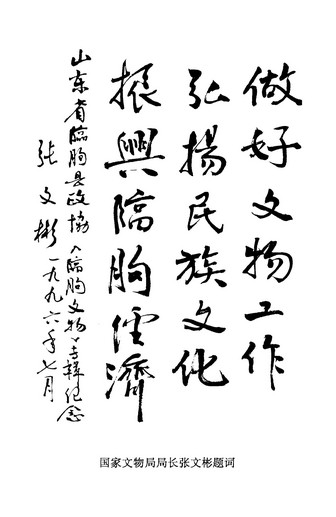 做好文物工作
弘揚民族文化
振興临朐经濟
山东省临朐县政协《临朐文物》专辑纪念
张文彬 一九九六年七月
国家文物局局长张文彬题词